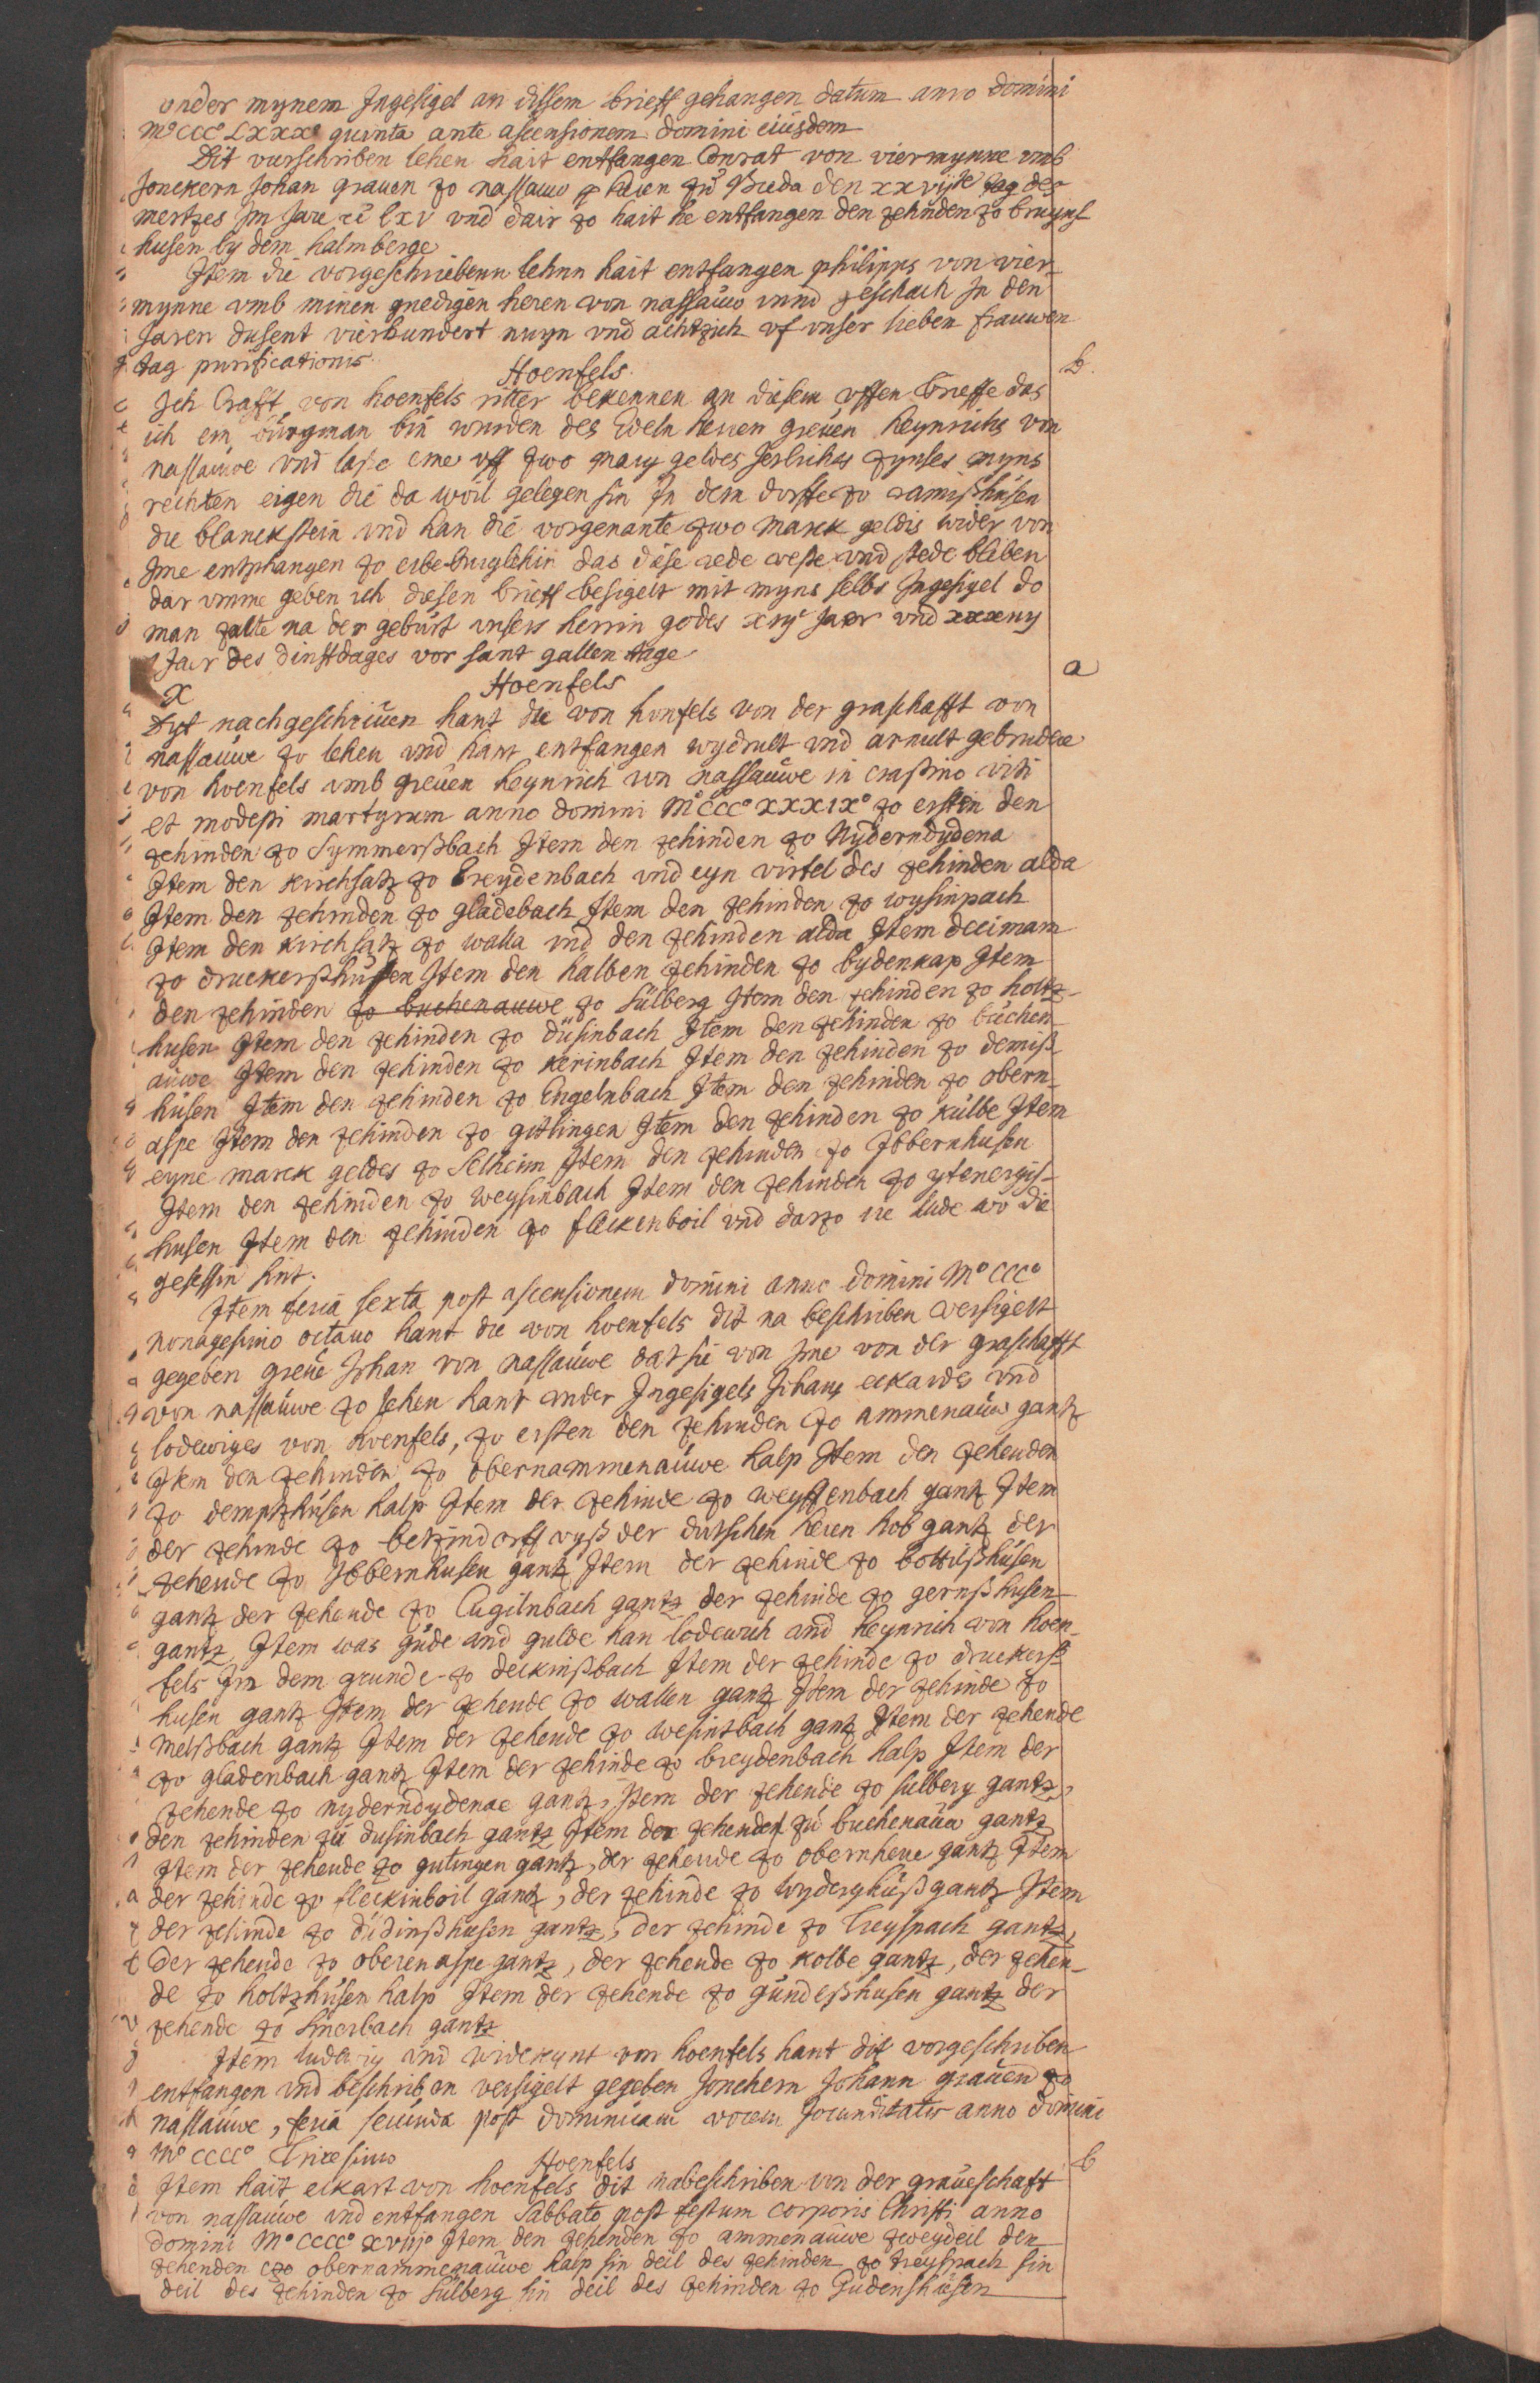 vnder mynem Jngesigel an dissem brieff gehangen datum anno domini
m° ccc° Lxxx° quinta ante ascensionem domini eiusdem
Dit vurschriben lehen hait entfangen Conrat von viermynne vmb
Jonckern Johan grauen zo nassauw heren zů Breda den xxvijte tag des
mertzes Jm Jare lxv vnd dair zo hait he entfangen den zehnden zo bruyns
husen by dem halmberge
Jtem die vorgeschriebenn lehnn hait entfangen philipps von vier-
mynne vmb minen gnedigen heren von nassauw vnnd geschach Jn den
Jaren dusent vierhundert nuyn vnd achtzich vf vnser lieben frauwen
tag purificationis
Hoenfels
b.
Jch Crafft von hoenfels ritter bekennen an diesem uffen brieffe das
ich ein burgman bin wurden des Edeln heren greuen heynrichs von
nassauwe vnd eme vff zwo marg geldes Jerliches zynses myns
rechten eigen die da woil gelegen sin Jn dem dorffe zo ramißhusen
die blanckstein vnd han die vorgenante zwo marck geldis wider von
Jme entphangen zo erbe burglehin das diese rede veste vnd stede bliben
dar vmme geben ich diesen brieff besigelt mit myns selbs Jngesigel do
man zalte na der geburt vnsers herrin godes xiijc Jaer vnd
Jair des dinstdages vor sant gallen tage
x
Hoenfels
a
Dyt nachgeschriuen hant die von honfels von der graschafft von
nassauwe zo lehen vnd hant entfangen wydrult vnd arnult gebrudere
von hoenfels vmb greuen heynrich von nassauwe in crastino viti
et modesti martyrum anno domini M° ccc° xxxix° zo erstin den
zehinden zo Symmerßbach Jtem den zehinden zo Nyderndydena
Jtem den kirchsatz zo breydenbach vnd eyn virtel des zehinden alda
Jtem den zehinden zo gladebach Jtem den zehinden zo wysinpach
Jtem den kirchsatz zo walla vnd den zehinden alda Jtem decimam
zo druckerßhusen Jtem den halben zehinden zo bydenkap Jtem
den zehinden zo buchenauwe zo Sulberg Jtem den zehinden zo holtz-
husen Jtem den zehinden zo dusinbach Jtem den zehinden zo buchen-
auwe Jtem den zehinden zo kerinbach Jtem den zehinden zo demiß-
husen Jtem den zehinden zo Engelnbach Jtem den zehinden zo obern-
aspe Jtem den zehinden zo gutlingen Jtem den zehinden zo kulbe Jtem
eyne marck geldes zo Selheim Jtem den zehinden zo Jbbernhusen
Jtem den zehinden zo weysinbach Jtem den zehinden zo ytenergis-
husen Jtem den zehinden zo fleckenboil vnd darzo die lude wo die
gesessin sint.
Jtem feria sexta post ascensionem domini anno domini M° ccc°
nonagesimo octauo hant die von hoenfels dit na beschriben versigelt
gegeben greue Johan von nassauwe dat sie von Jme von der graschafft
von nassauwe zo lehen hant vnder Jngesigels Johans eckardes vnd
lodewiges von hoenfels, zo ersten den zehinden zo ammenauwe gantz
Jtem den zehinden zo obernammenauwe halp Jtem den zehenden
zo demptzhusen halp Jtem der zehinde zo weyssenbach gantz Jtem
der zehinde zo betzindorff vyß der dutschen heren hob gantz der
zehende zo Jbbernhusen gantz Jtem der zehinde zo bottilßhusen
gantz der zehende zo Engilnbach gantz der zehinde zo gernßhusen
gantz Jtem was gude vnd gulde han lodewich vnd heynrich von hoen-
fels Jn dem grunde zo deckinßbach Jtem der zehinde zo druckerß-
husen gantz Jtem der zehende zo wallen gantz Jtem der zehinde zo
melßbach gantz Jtem der zehende zo wesintbach gantz Jtem der zehende
zo gladenbach gantz Jtem der zehinde zo breydenbach halp Jtem der
zehende zo nyderndydenae gantz, Jtem der zehende zo sulberg gantz,
den zehinden zu dusinbach gantz Jtem der zehenden zu buchenaua gantz
Jtem der zehende zo gutingen gantz, der zehende zo obernheue gantz Jtem
der zehinde zo fleckinboil gantz, der zehinde zo wyderghuß gantz Jtem
der zehinde zo dudinßhusen gantz, der zehinde zo treyspach gantz,
der zehende zo oberenaspe gantz, der zehende zo kolbe gantz, der zehen-
de zo holtzhusen halp Jtem der zehende zo gundeßhusen gantz der
zehende zo gantz
Jtem ludewig vnd widekynt von hoenfels hant dit vorgeschriben
entfangen vnd beschriben versigelt gegeben Jonchern Johann grauen zo
nassauwe, feria secunda post dominicam vocem Jocunditatis anno domini
M° cccc° tricesimo
Hoenfels
b
Jtem hait eckart von hoenfels dit nabeschriben von der graueschaft
von nassauwe vnd entfangen Sabbato post festum corporis Christi anno
domini M° cccc° xviij° Jtem den zehenden zo ammenauwe zweydeil den
zehenden czo obernammenauwe halp sin deil des zehinden zo treyspach sin
deil des zehinden zo sulberg sin deil des zehinden zo Gudenshusen